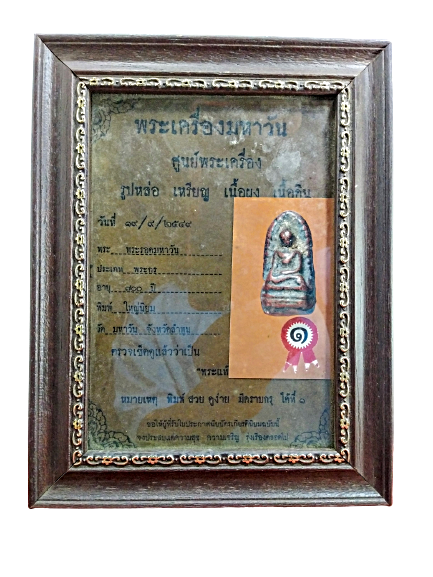 พระเครื่องมหาวัน
ศูนย์พระเครื่อง
รูปหล่อ เหรียญ เนื้อผง เนื้อดิน
วันที่ ๑๙/๙/๒๕๔๙
พระ พระรอดมหาวัน
ประเภท พระกรุ
อายุ ปี
พิมพ์ ใหญ่นิยม
วัด มหาวัน จังหวัดลำพูน
ตรวจเช็คดูแล้วว่าเป็น
"พระแท้
หมายเหตุ พิมพ์ สวย ดูง่าย มีคราบกรุ ได้ที่ ๑
ขอให้ผู้ที่รับใบประกาศนียบัตรเกียรตินิยมฉบับนี้
จงประสบแต่ความสุข ความเจริญ รุ่งเรืองตลอดไป
๑